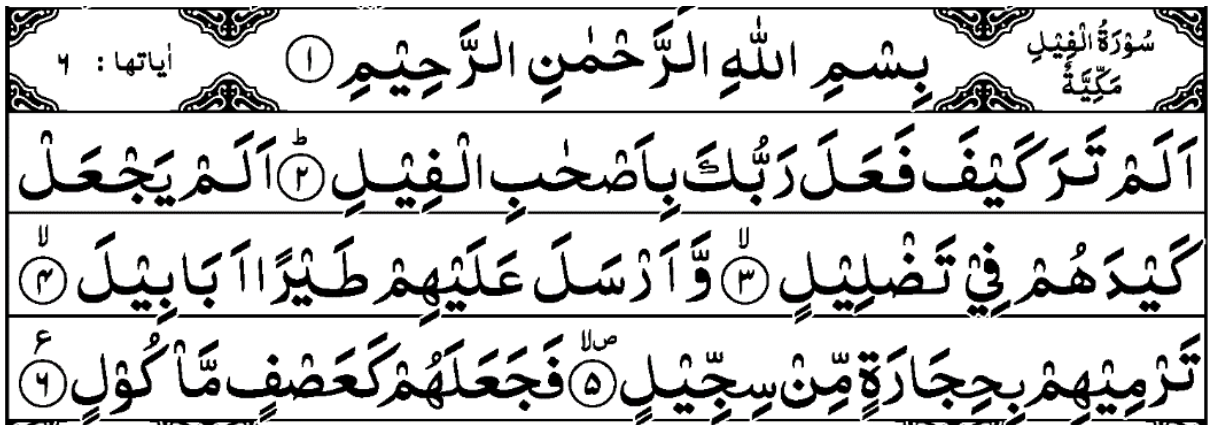 سُوْرَةُ الْفِيْلِ مَكِّيَّةٌ
بِسْمِ اللهِ الرَّحْمٰنِ الرَّحِيْمِ ۝۱
اٰياتها : ٦
اَلَمْ تَرَ كَيْفَ فَعَلَ رَبُّكَ بِاَصْحٰبِ الْفِيْلِ ۝۲ؕ اَلَمْ يَجْعَلْ
كَيْدَهُمْ فِيْ تَضْلِيْلٍ ۝۳ۙ وَّ اَرْسَلَ عَلَيْهِمْ طَيْرًا اَبَابِيْلَ ۝۴ۙ
تَرْمِيْهِمْ بِحِجَارَةٍ مِّنْ سِجِّيْلٍ ۝۵ صلا فَجَعَلَهُمْ كَعَصْفٍ مَّاْكُوْلٍ ۝۶ ع